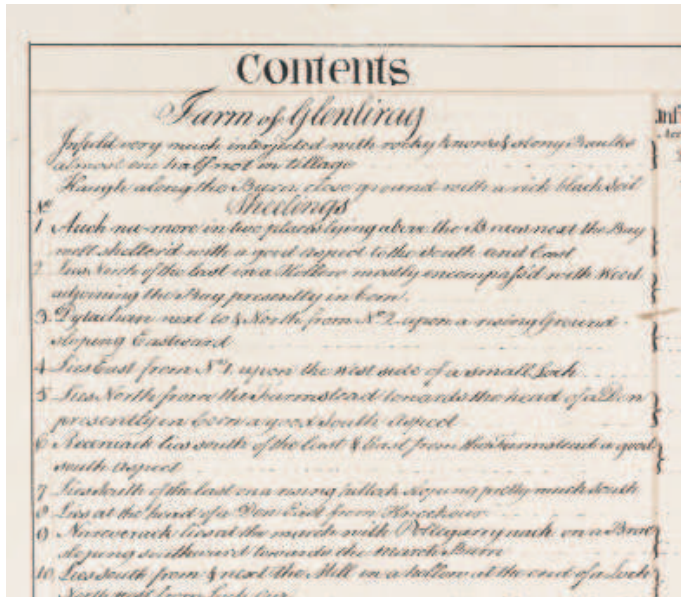 Contents
Farm of Glenlirag
Infi
Infield very much interjected with rocky knows & stony Baulks
almost one half not in tillage
Haugh along the Burn close ground with a rich black Soil
No Sheelings
1 Auch na-more in two places lying above the Braes next the Bay
well shelter'd with a good aspect to the South and East
2 Lies North of the last in a Hollow mostly encompass'd with Wood
adjoining the Bay presently in Corn.
3. Dylachan next to & North from No 2 upon a rising Ground
sloping Eastward
4 Lies East from No 1 upon the west side of a small Loch
5 Lies North from the Farmstead towards the head of a Den
presently in Corn a good South Aspect
6 lies south of the last & East from the Farmstead a good
south Aspect
7 Lies South of the last on a rising hillock sloping pretty much South
8 Lies at the head of a Den East from
9 lies at the march with on a Brae
sloping southward towards the March Burn
10, Lies South from & next the Mill in a hollow at the end of a Loch
North West from